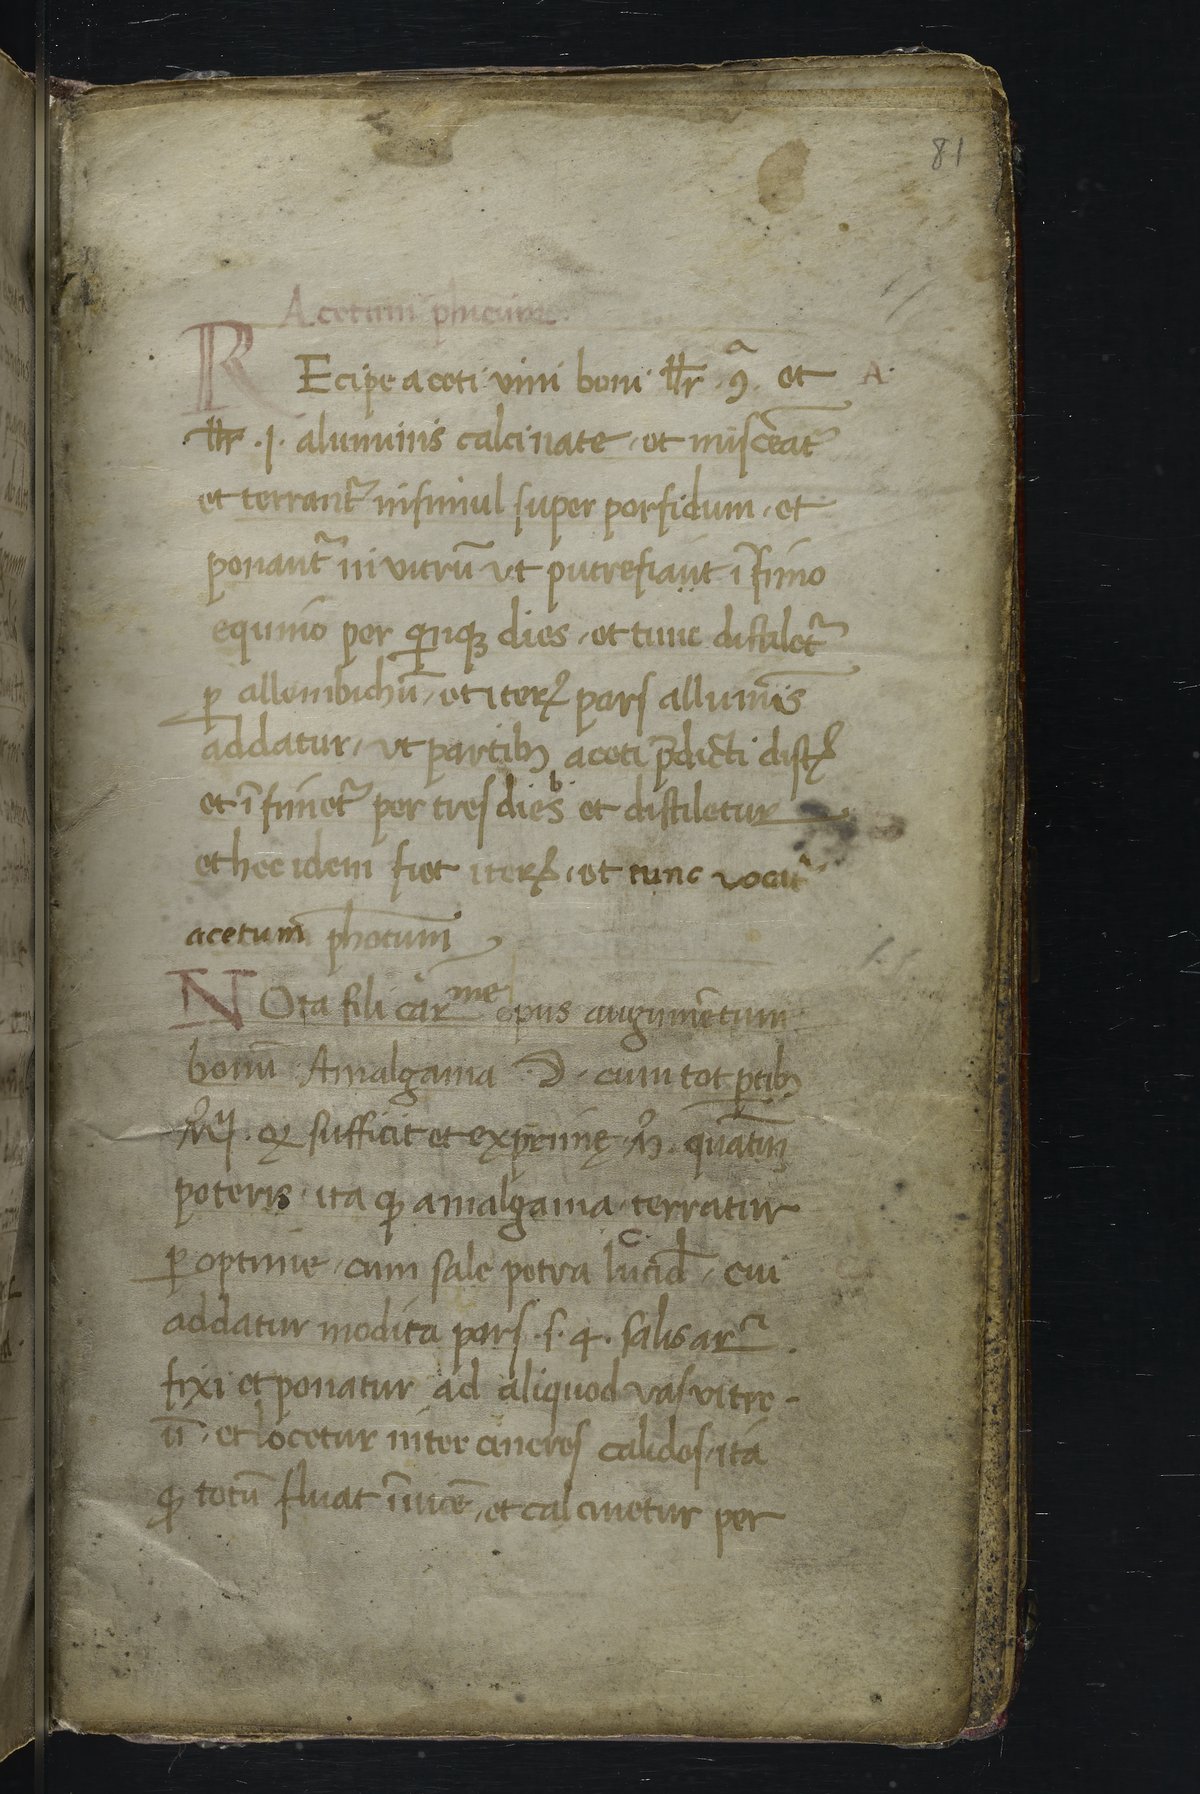 81
Acetum phicum
REcipe aceti vini boni llr . 9a . et A
llr . j . aluminis calcinate . et misceat᷑
et terrant᷑ insimul super porfidum . et
ponant᷑ in vitrū vt putrefiant ī fimo
equino per qinqꝫ dies . et tunc distilet᷑
ꝑ allembichū . et iterꝝ pars alluminis
addatur . vt partibꝫ aceti p̄dicti dist
et ī fimet᷑ per tres dies et distiletur
et hec idem fiet iterꝝ . et tunc vocat᷑
acetum phōcum
NOta fili carme opus augumētum
bonū Amalgama . ☽ . cum tot ꝑtibꝫ
sufficit et exprime quātū
poteris . ita qꝫ amalgama terratur
ꝑ optime . cum sale petra lucid . cui
addatur modica pars . s . 4 . salis ar
fixi et ponatur ad aliquod vas vitre-
ū . et locetur inter cineres calidos . ita
ꝙ totū fluat īuicē . et calcinetur per